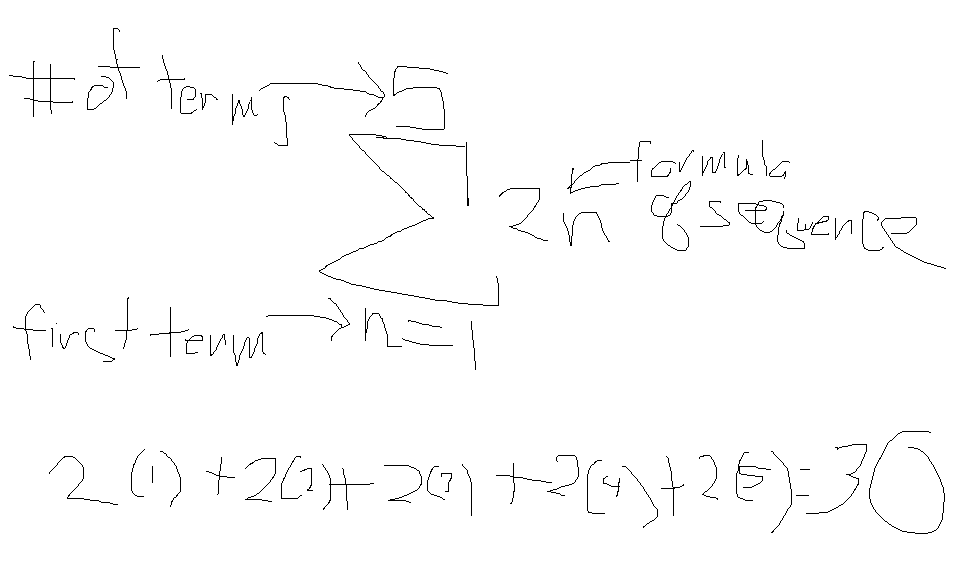 # of terms → 5
∑ 2n ← formula of sequence
first term → n=1
2(1)+2(2)+2(3)+2(4)+2(5)=30